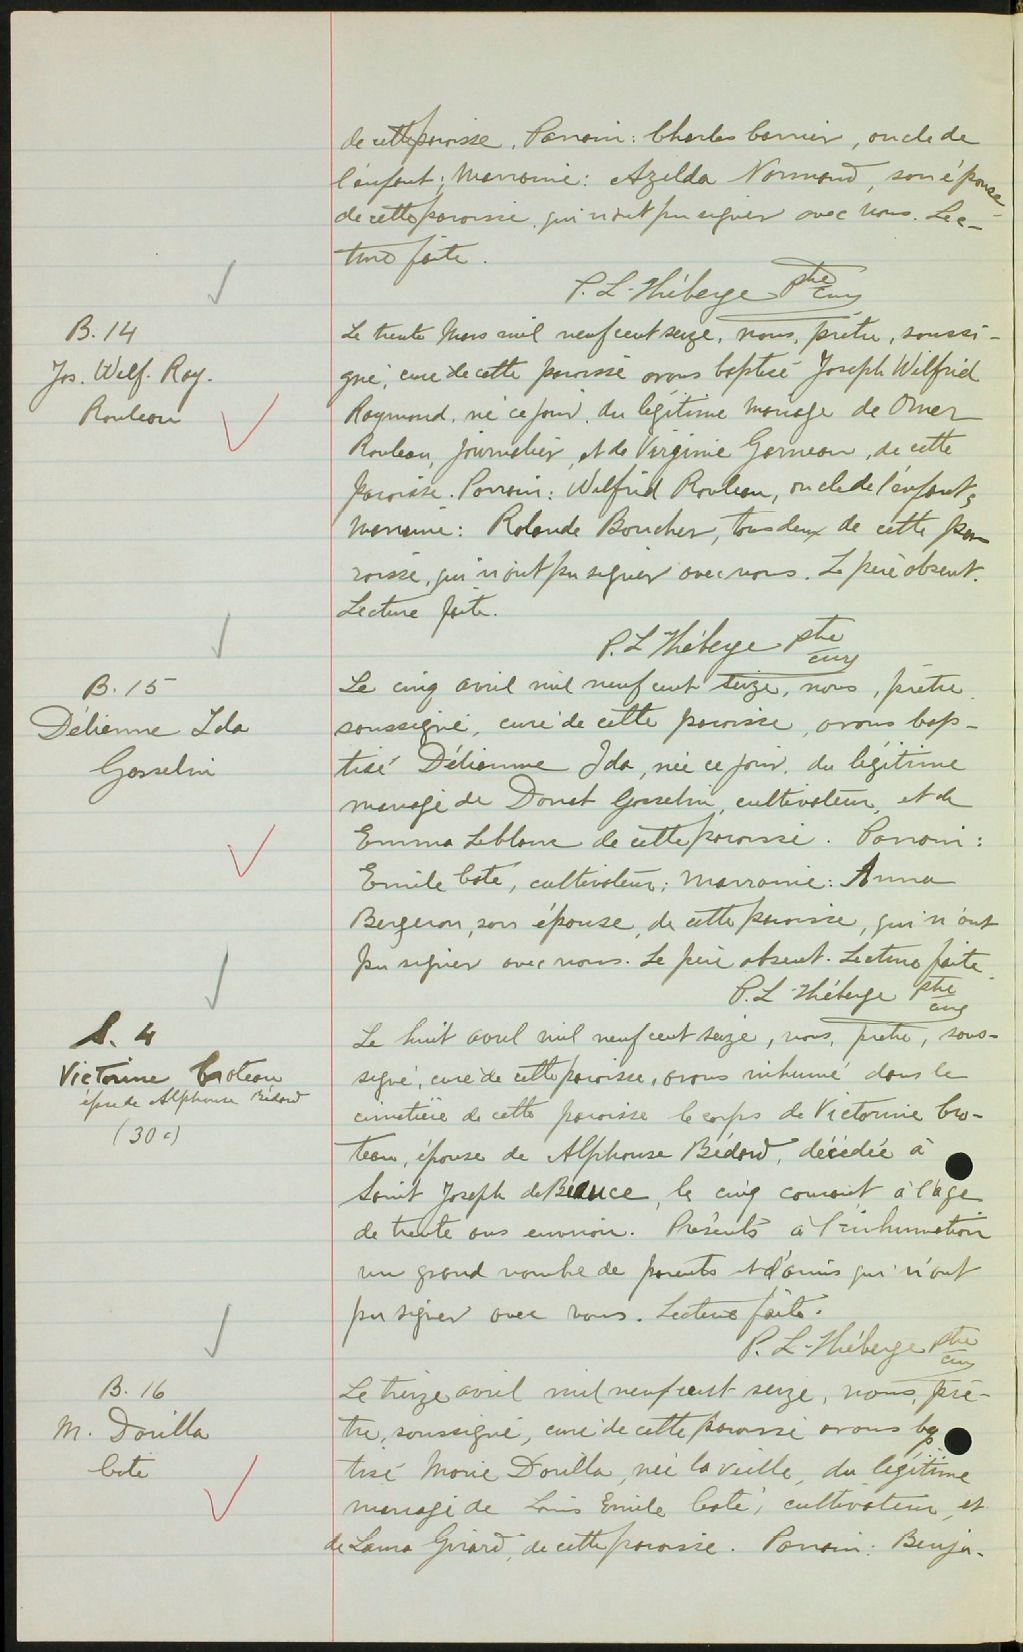 de cette paroisse. Parrain: Charles Carrier, oncle de
l'enfant; Marraine: Azilda Normand, son épouse
de cette paroisse, qui n'ont pu signer avec nous. Lec-
ture faite.
P. L. Théberge ptre
curé
B. 14
Jos. Wilf. Ray.
Rouleau
Le trente Mars mil neuf cent seize, nous, prêtre, soussi-
gné, curé de cette paroisse avons baptisé Joseph Wilfrid
Raymond, né ce jour, du légitime mariage de Omer
Rouleau, journalier, et de Virginie Garneau, de cette
paroisse. Parrain: Wilfrid Rouleau, oncle de l'enfant;
Marraine: Rolande Boucher, tous deux de cette pa-
roisse, qui n'ont pu signer avec nous. Le père absent.
Lecture faite.
P. L. Théberge ptre
curé
B. 15
Délienne Ida
Gosselin
Le cinq avril mil neuf cent seize, nous, prêtre
soussigné, curé de cette paroisse, avons bap-
tisé Délienne Ida, née ce jour, du légitime
mariage de Donat Gosselin, cultivateur, et de
Emma Leblanc de cette paroisse. Parrain:
Emile Coté, cultivateur; Marraine: Anna
Bergeron, son épouse, de cette paroisse, qui n'ont
pu signer avec nous. Le père absent. Lecture faite.
P. L. Théberge ptre
curé
S. 4
Victorine Croteau
épse de Alphonse Bédard
(30 a)
Le huit avril mil neuf cent seize, nous, prêtre, sous-
signé, curé de cette paroisse, avons inhumé dans le
cimetière de cette paroisse le corps de Victorine Cro-
teau, épouse de Alphonse Bédard, décédée à
Saint Joseph de Beauce, le cinq courant à l'âge
de trente ans environ. Présents à l'inhumation
un grand nombre de parents et d'amis qui n'ont
pu signer avec nous. Lecture faite.
P. L. Théberge ptre
curé
B. 16
M. Dorilla
Coté
Le treize avril mil neuf cent seize, nous, prê-
tre, soussigné, curé de cette paroisse avons bap
tisé Marie Dorilla, née la veille, du légitime
mariage de Louis Emile Coté, cultivateur, et
de Laura Girard, de cette paroisse. Parrain: Benja-